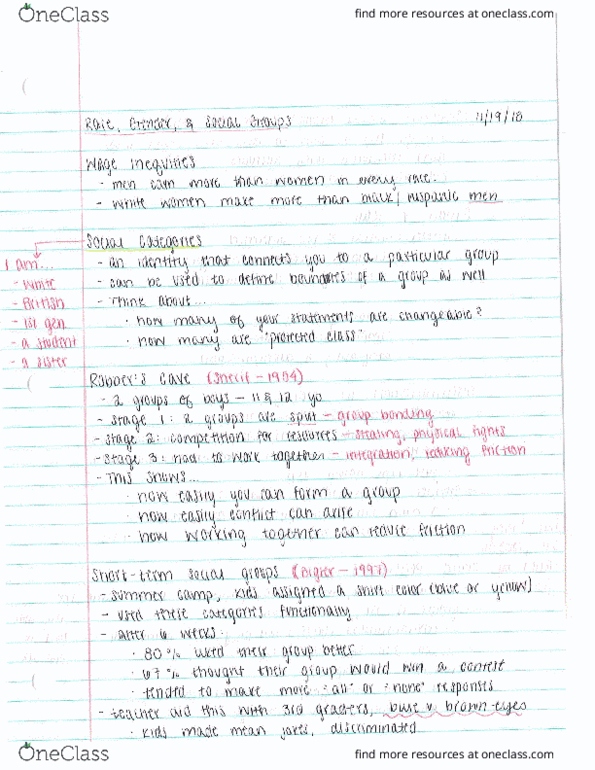 OneClass
find more resources at oneclass.com
Race, Gender, & Social Groups 11/19/18
Wage inequities
- men earn more than women in every race.
- white women make more than black/hispanic men
Social Categories
I am...
- white
- British
- 1st gen
- a student
- a sister
- an identity that connects you to a particular group
- can be used to define boundaries of a group as well
- Think about...
· how many of your statements are changeable?
· how many are "protected class"
Robber's Cave (Sherif - 1954)
- 2 groups of boys - 11 & 12 yo
- Stage 1: 2 groups are split - group bonding
- Stage 2: competition for resources - stealing, physical fights
- Stage 3: had to work together - integration, lacking friction
- This shows...
· how easily you can form a group
· how easily conflict can arise
· how working together can reduce friction
Short-term social groups (Bigler - 1997)
- summer camp, kids assigned a shirt color (blue or yellow)
- used these categories functionally
- After 6 weeks.
· 80% liked their group better
· 67% thought their group would win a contest
· tended to make more "all" or "none" responses
- teacher did this with 3rd graders, blue v brown eyes
· kids made mean jokes, discriminated
OneClass
find more resources at oneclass.com